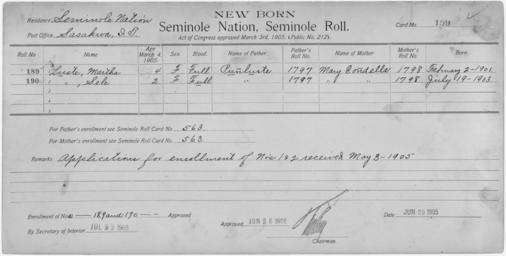 NEW BORN
Residence Seminole Nation
Seminole Nation, Seminole Roll.
Card No. 159
Post Office, Sasakwa, I.T.
Act of Congress approved March 3rd, 1905. (Public No. 212).
Roll No. Name Age March 4, 1905. Sex Blood. Name of Father Father's Roll No. Name of Mother Mother's Roll No. Born.
189 Luste, Martha 4 F Full Punluste 1797 Mary 1798 February 2-1901
190 " , 2 F Full " 1797 " " 1798 July 19-1903
For Father's enrollment see Seminole Roll Card No. 563
For Mother's enrollment see Seminole Roll Card No. 563
Remarks Application for enrollment of Nos 1&2 received May 3-1905
Enrollment of Nos 189 and 190 Approved
Approved JUN 1905
Date JUN 29 1905
By Secretary of Interior JUL 22 1905
Chairman.